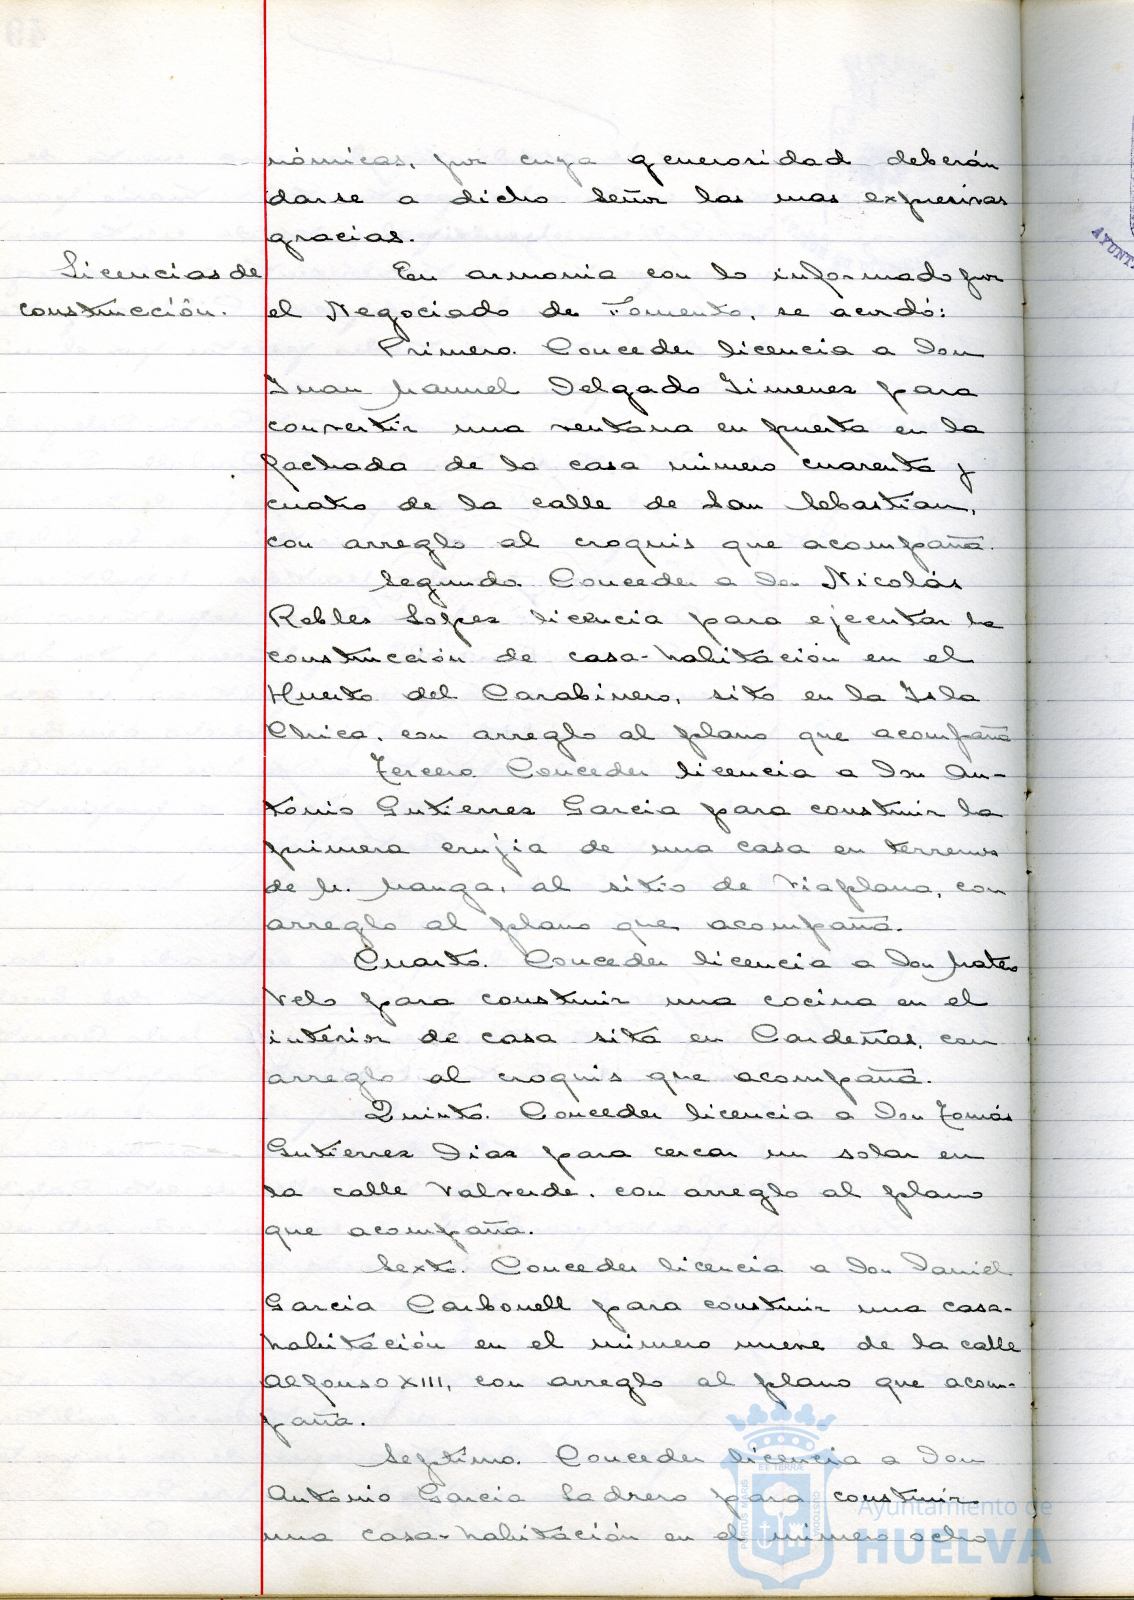 nómicas, por cuya generosidad deberán
darse a dicho Señor las mas expresivas
gracias.
Licencias de
construcción.
En armonia con lo informado por
el Negociado de Fomento, se acordó:
Primero. Conceder licencia a Don
Juan Manuel Delgado Jimenez para
convertir una ventana en puerta en la
fachada de la casa número cuarenta y
cuatro de la calle de San Sebastian,
con arreglo al croquis que acompaña.
Segundo. Conceder a Don Nicolás
Robles Lopez licencia para ejecutar la
construcción de casa-habitación en el
Huerto del Carabinero, sito en la Isla
Chica, con arreglo al plano que acompaña
Tercero. Conceder licencia a Don An-
tonio Gutierrez Garcia para construir la
primera crujia de una casa en terrenos
de M. Manga, al sitio de Viaplana, con
arreglo al plano que acompaña.
Cuarto. Conceder licencia a Don Mateo
Velo para construir una cocina en el
interior de casa sita en Cardeñas, con
arreglo al croquis que acompaña.
Quinto. Conceder licencia a Don Tomás
Gutierrez Diaz para cercar un solar en
la calle Valverde, con arreglo al plano
que acompaña.
Sexto. Conceder licencia a Don Daniel
Garcia Carbonell para construir una casa-
habitación en el número nueve de la calle
Alfonso XIII, con arreglo al plano que acom-
paña.
Septimo. Conceder licencia a Don
Antonio Garcia Ladrero para construir
una casa-habitación en el número ocho
AYUNT
PORTUS MARIS
ET TERRAE
CUSTODIA
Ayuntamiento de
HUELVA